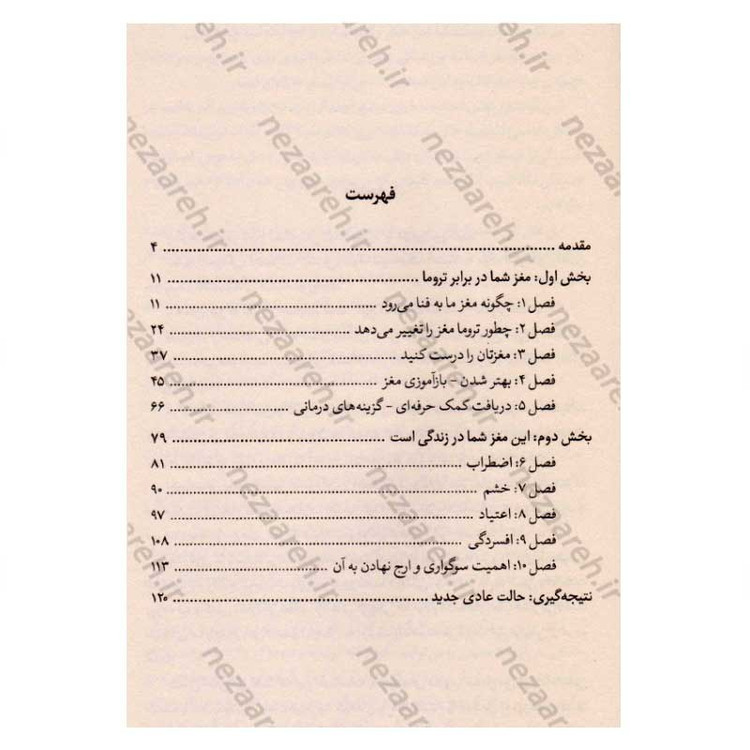 فهرست
مقدمه ........ ۴
بخش اول: مغز شما در برابر تروما ........ ۱۱
فصل ۱: چگونه مغز ما به فنا می‌رود ........ ۱۱
فصل ۲: چطور تروما مغز را تغییر می‌دهد ........ ۲۴
فصل ۳: مغزتان را درست کنید ........ ۳۷
فصل ۴: بهتر شدن - بازآموزی مغز ........ ۴۵
فصل ۵: دریافت کمک حرفه‌ای - گزینه‌های درمانی ........ ۶۶
بخش دوم: این مغز شما در زندگی است ........ ۷۹
فصل ۶: اضطراب ........ ۸۱
فصل ۷: خشم ........ ۹۰
فصل ۸: اعتیاد ........ ۹۷
فصل ۹: افسردگی ........ ۱۰۸
فصل ۱۰: اهمیت سوگواری و ارج نهادن به آن ........ ۱۱۳
نتیجه‌گیری: حالت عادی جدید ........ ۱۲۰
nezaareh.ir